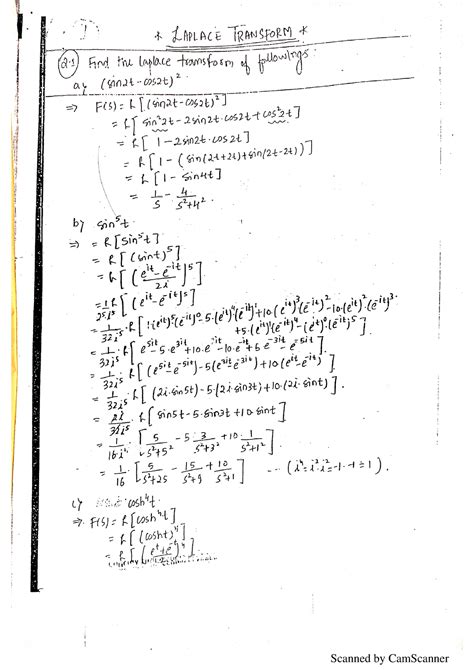 * LAPLACE TRANSFORM *
Q.1 Find the laplace transform of followings
a) (sin2t - cos2t)²
⇒ F(s) = L[(sin2t - cos2t)²]
= L[sin²2t - 2sin2t.cos2t + cos²2t]
= L[1 - 2sin2t.cos2t]
= L[1 - (sin(2t+2t) + sin(2t-2t))]
= L[1 - sin4t]
= 1/s - 4/s²+4².
b) sin⁵t.
⇒ = L[sin⁵t]
= L[(sint)⁵]
= L[(e^it - e^-it / 2i)⁵]
= 1/2⁵i⁵ L[(e^it - e^-it)⁵]
= 1/32i⁵ . L[1(e^it)⁵(e^-it)⁰ - 5.(e^it)⁴(e^-it)¹ + 10(e^it)³(e^-it)² - 10.(e^it)²(e^-it)³
+ 5.(e^it)¹(e^-it)⁴ - (e^it)⁰(e^-it)⁵]
= 1/32i⁵ . L[e^5it - 5.e^3it + 10.e^it - 10.e^-it + 5 e^-3it - e^-5it]
= 1/32i⁵ . L[(e^5it - e^-5it) - 5(e^3it - e^-3it) + 10(e^it - e^-it)]
= 1/32i⁵ . L[(2i.sin5t) - 5.(2i.sin3t) + 10.(2i.sint)].
= 2i/32i⁵ . L[sin5t - 5.sin3t + 10 sint]
= 1/16.i⁴ . [5/s²+5² - 5.3/s²+3² + 10.1/s²+1²]
= 1/16 . [5/s²+25 - 15/s²+9 + 10/s²+1] --- (i⁴ = i².i² = -1.-1 = 1).
c) cosh⁴t.
⇒ F(s) = L[cosh⁴t]
= L[(cosht)⁴]
= L[(e^t + e^-t / 2)⁴]
Scanned by CamScanner